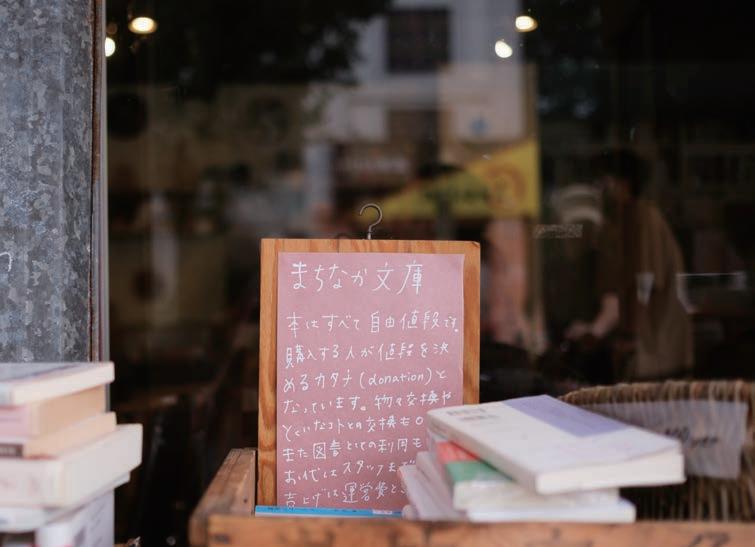 まちなか文庫
本はすべて自由値段です。
購入する人が値段を決
めるカタチ(donation)と
なっています。物々交換や
とくいなコトとの交換も○
また図書としての利用も
お代はスタッフま
売上げは運営費と